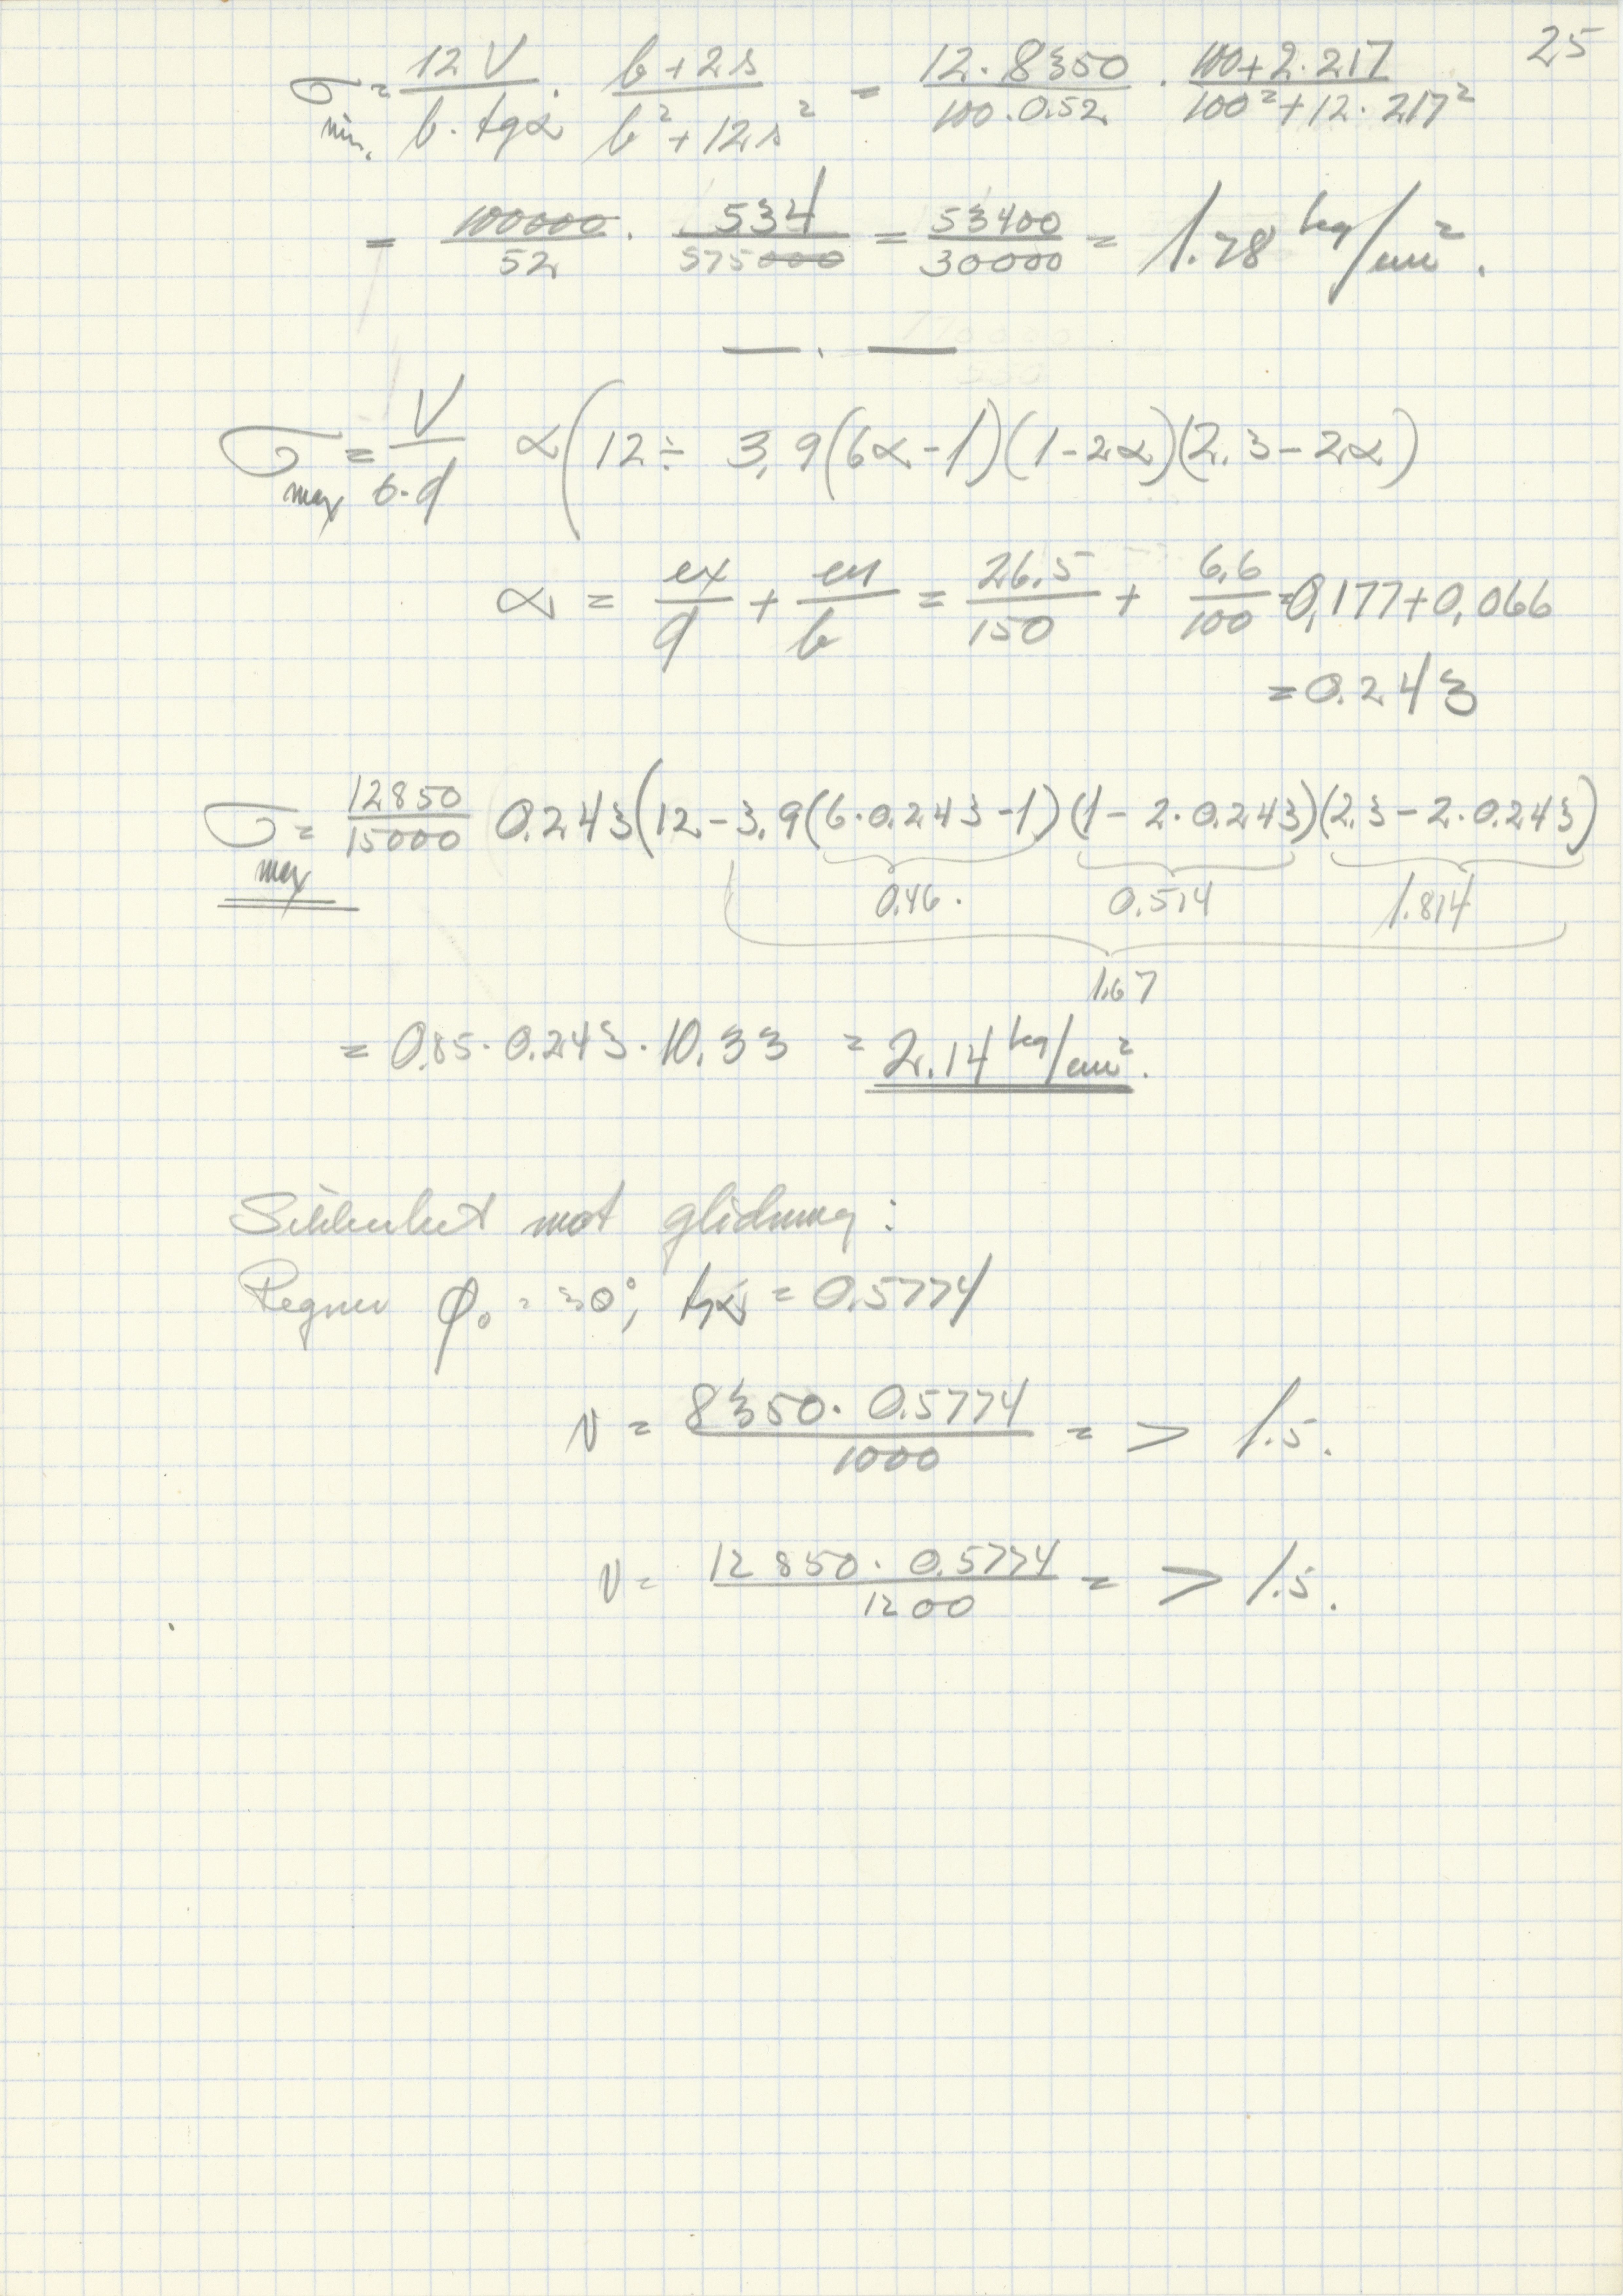 25
σ min. = 12 V / b · tgα · b + 2s / b² + 12s² = 12 · 8350 / 100 · 0.52 · 100 + 2 · 217 / 100² + 12 · 217²
= 100000 / 52 · 534 / 575000 = 53400 / 30000 = 1.78 kg/cm².
— . —
σ max = V / b·d α (12 ÷ 3,9(6α - 1)(1 - 2α)(2.3 - 2α)
α = ex / d + en / b = 26.5 / 150 + 6.6 / 100 = 0,177 + 0,066
= 0.243
σ max = 12850 / 15000 0.243 (12 - 3,9(6 · 0.243 - 1)(1 - 2 · 0.243)(2.3 - 2 · 0.243)
0.46. 0.514 1.814
1.67
= 0.85 · 0.243 · 10.33 = 2.14 kg/cm².
Sikkerhet mot glidning:
Regner φ₀ = 30°, tgα = 0.5774
N = 8350 · 0.5774 / 1000 = > 1.5.
N = 12850 · 0.5774 / 1200 = > 1.5.